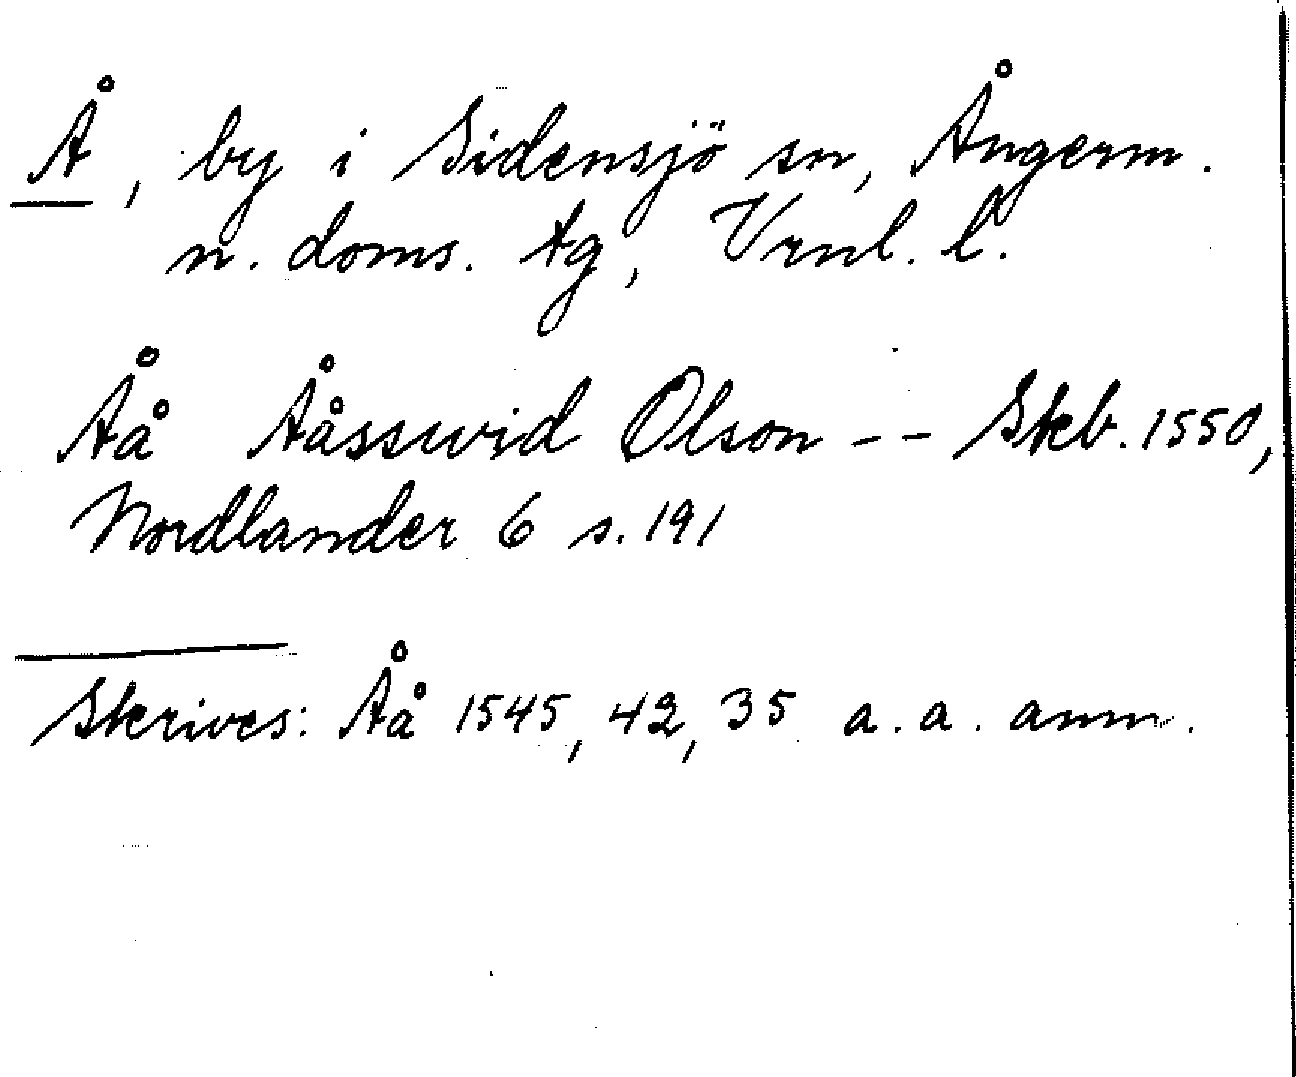 Å, by i Sidensjö sn, Ångerm.
n. doms. tg, Vrnl. l.
Åå Ååsswid Olson -- Skb. 1550,
Nordlander 6 s. 191
Skrives: Åå 1545, 42, 35 a. a. anm.